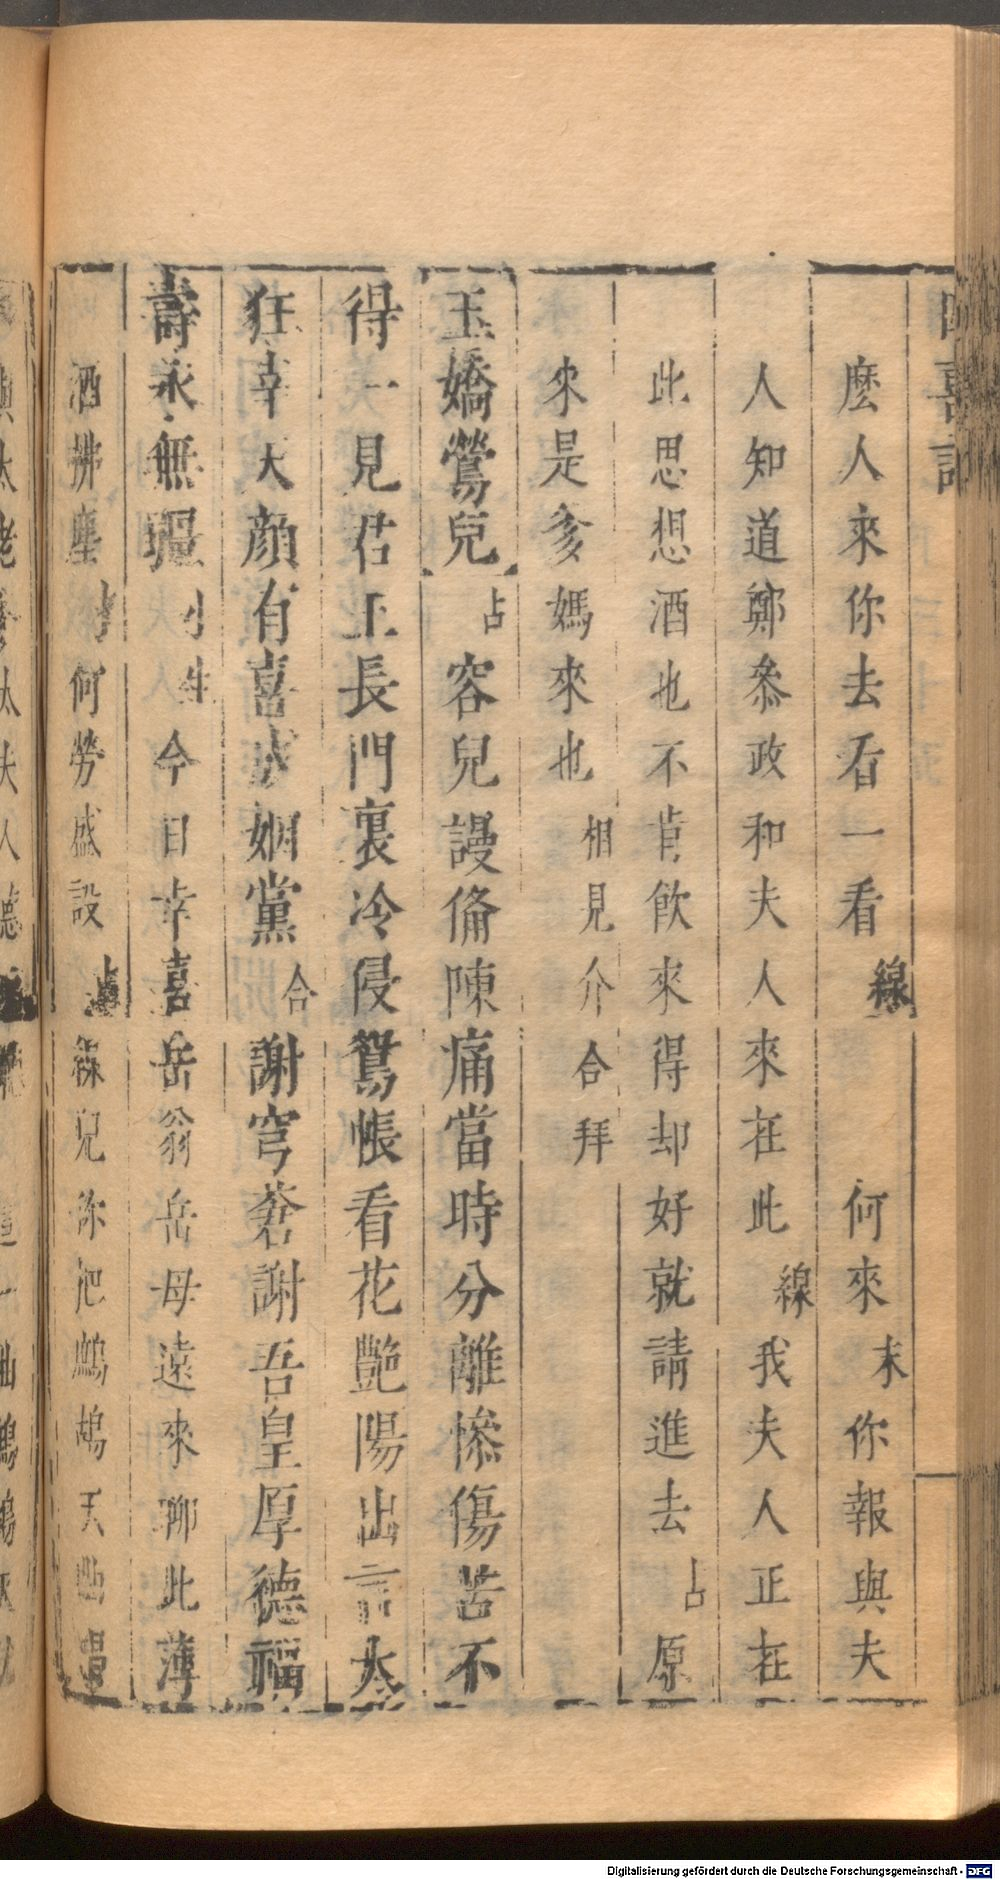 四喜記
麽人來你去看一看線　何來末你報與夫
人知道鄭叅政和夫人來在此線我夫人正在
此思想酒也不肯飲來得却好就請進去占原
來是爹媽來也相見介合拜
玉嬌鶯兒占容兒謾俻陳痛當時分離慘傷苦不
得一見君王長門裏冷侵鴛帳看花艷陽出言太
狂幸天顔有喜成姻黨合謝穹蒼謝吾皇厚德福
壽永無疆小生今日幸喜岳翁岳母遠來聊此薄
酒拂塵 何勞盛設 線兒你把鷓鴣天
Digitalisierung gefördert durch die Deutsche Forschungsgemeinschaft - DFG